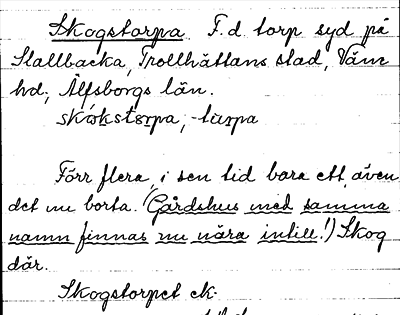 Skogstorpa. F.d. torp syd på
Stallbacka, Trollhättans stad, Väne
hd; Älfsborgs län.
skókstorpa, -turpa
Förr flera, i sen tid bara ett, även
det nu borta. (Gårdshus med samma
namn finnas nu nära intill!) Skog
där.
Skogstorpet ek.